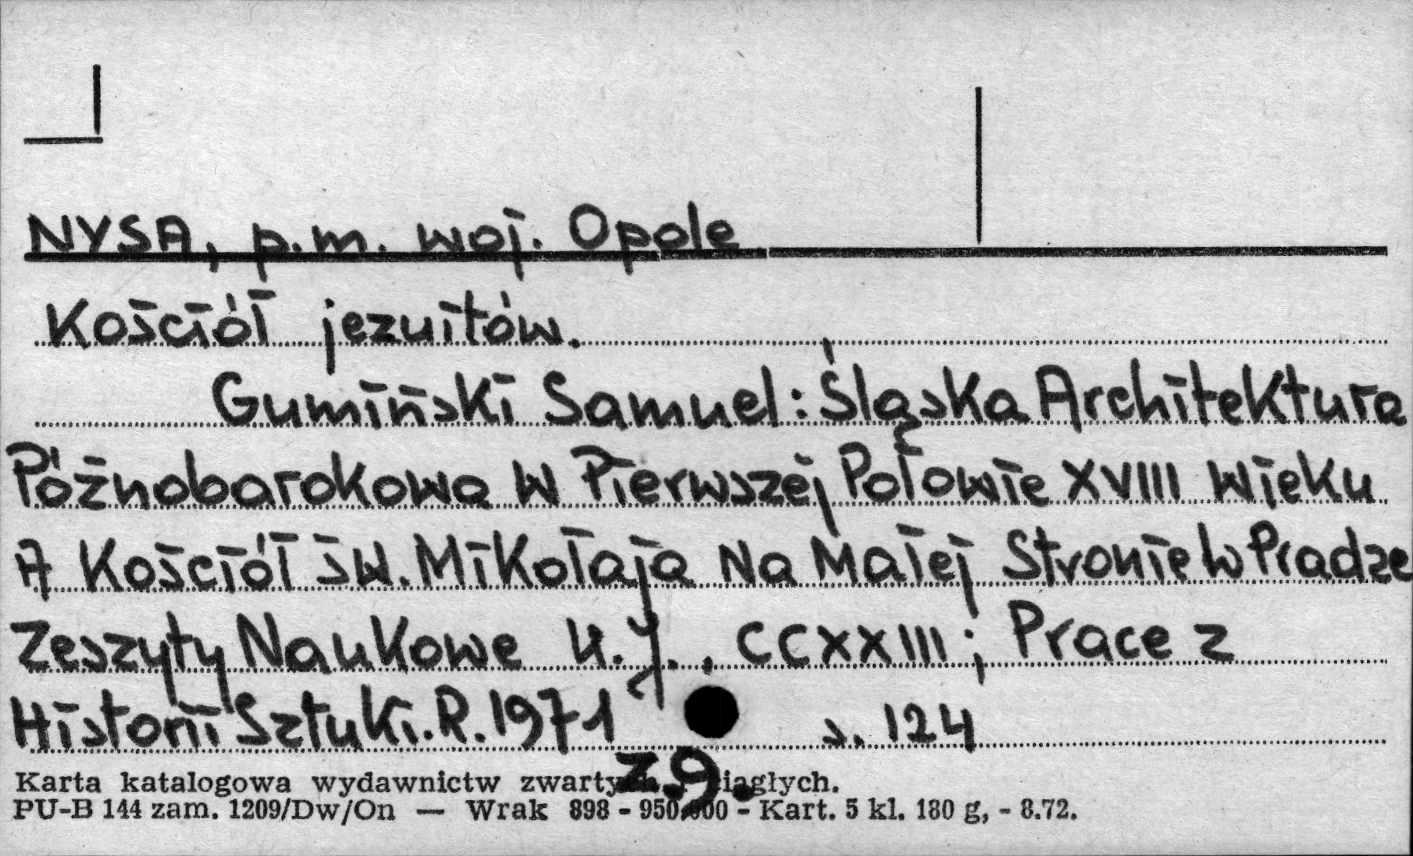 NYSA, p.m. woj. Opole
Kościół jezuitów.
Gumiński Samuel: Śląska Architektura
Późnobarokowa W Pierwszej Połowie XVIII wieku
A Kościół św. Mikołaja Na Małej Stronie w Pradze
Zeszyty Naukowe U.J., CCXXIII; Prace z
Historii Sztuki. R. 1971 s. 124
z9.
Karta katalogowa wydawnictw ciągłych.
PU-B 144 zam. 1209/Dw/On — Wrak 898 - 950.000 - Kart. 5 kl. 180 g, - 8.72.